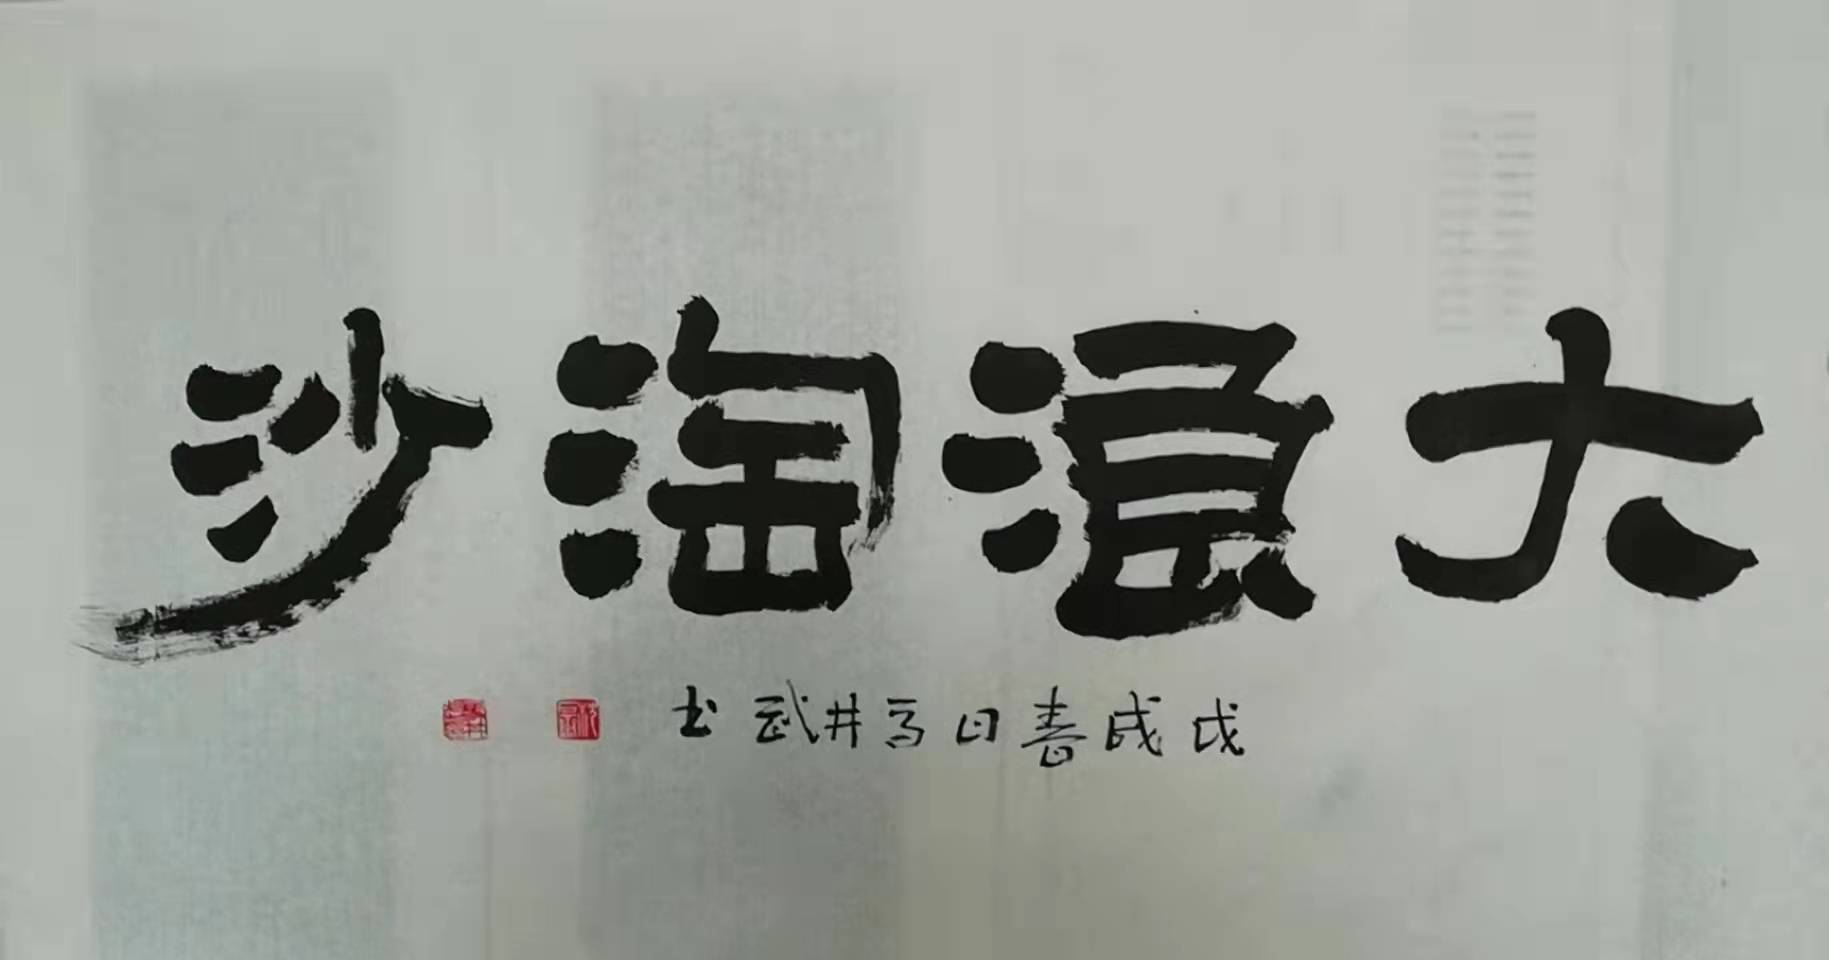 大浪淘沙
戊戌春日馬井武书